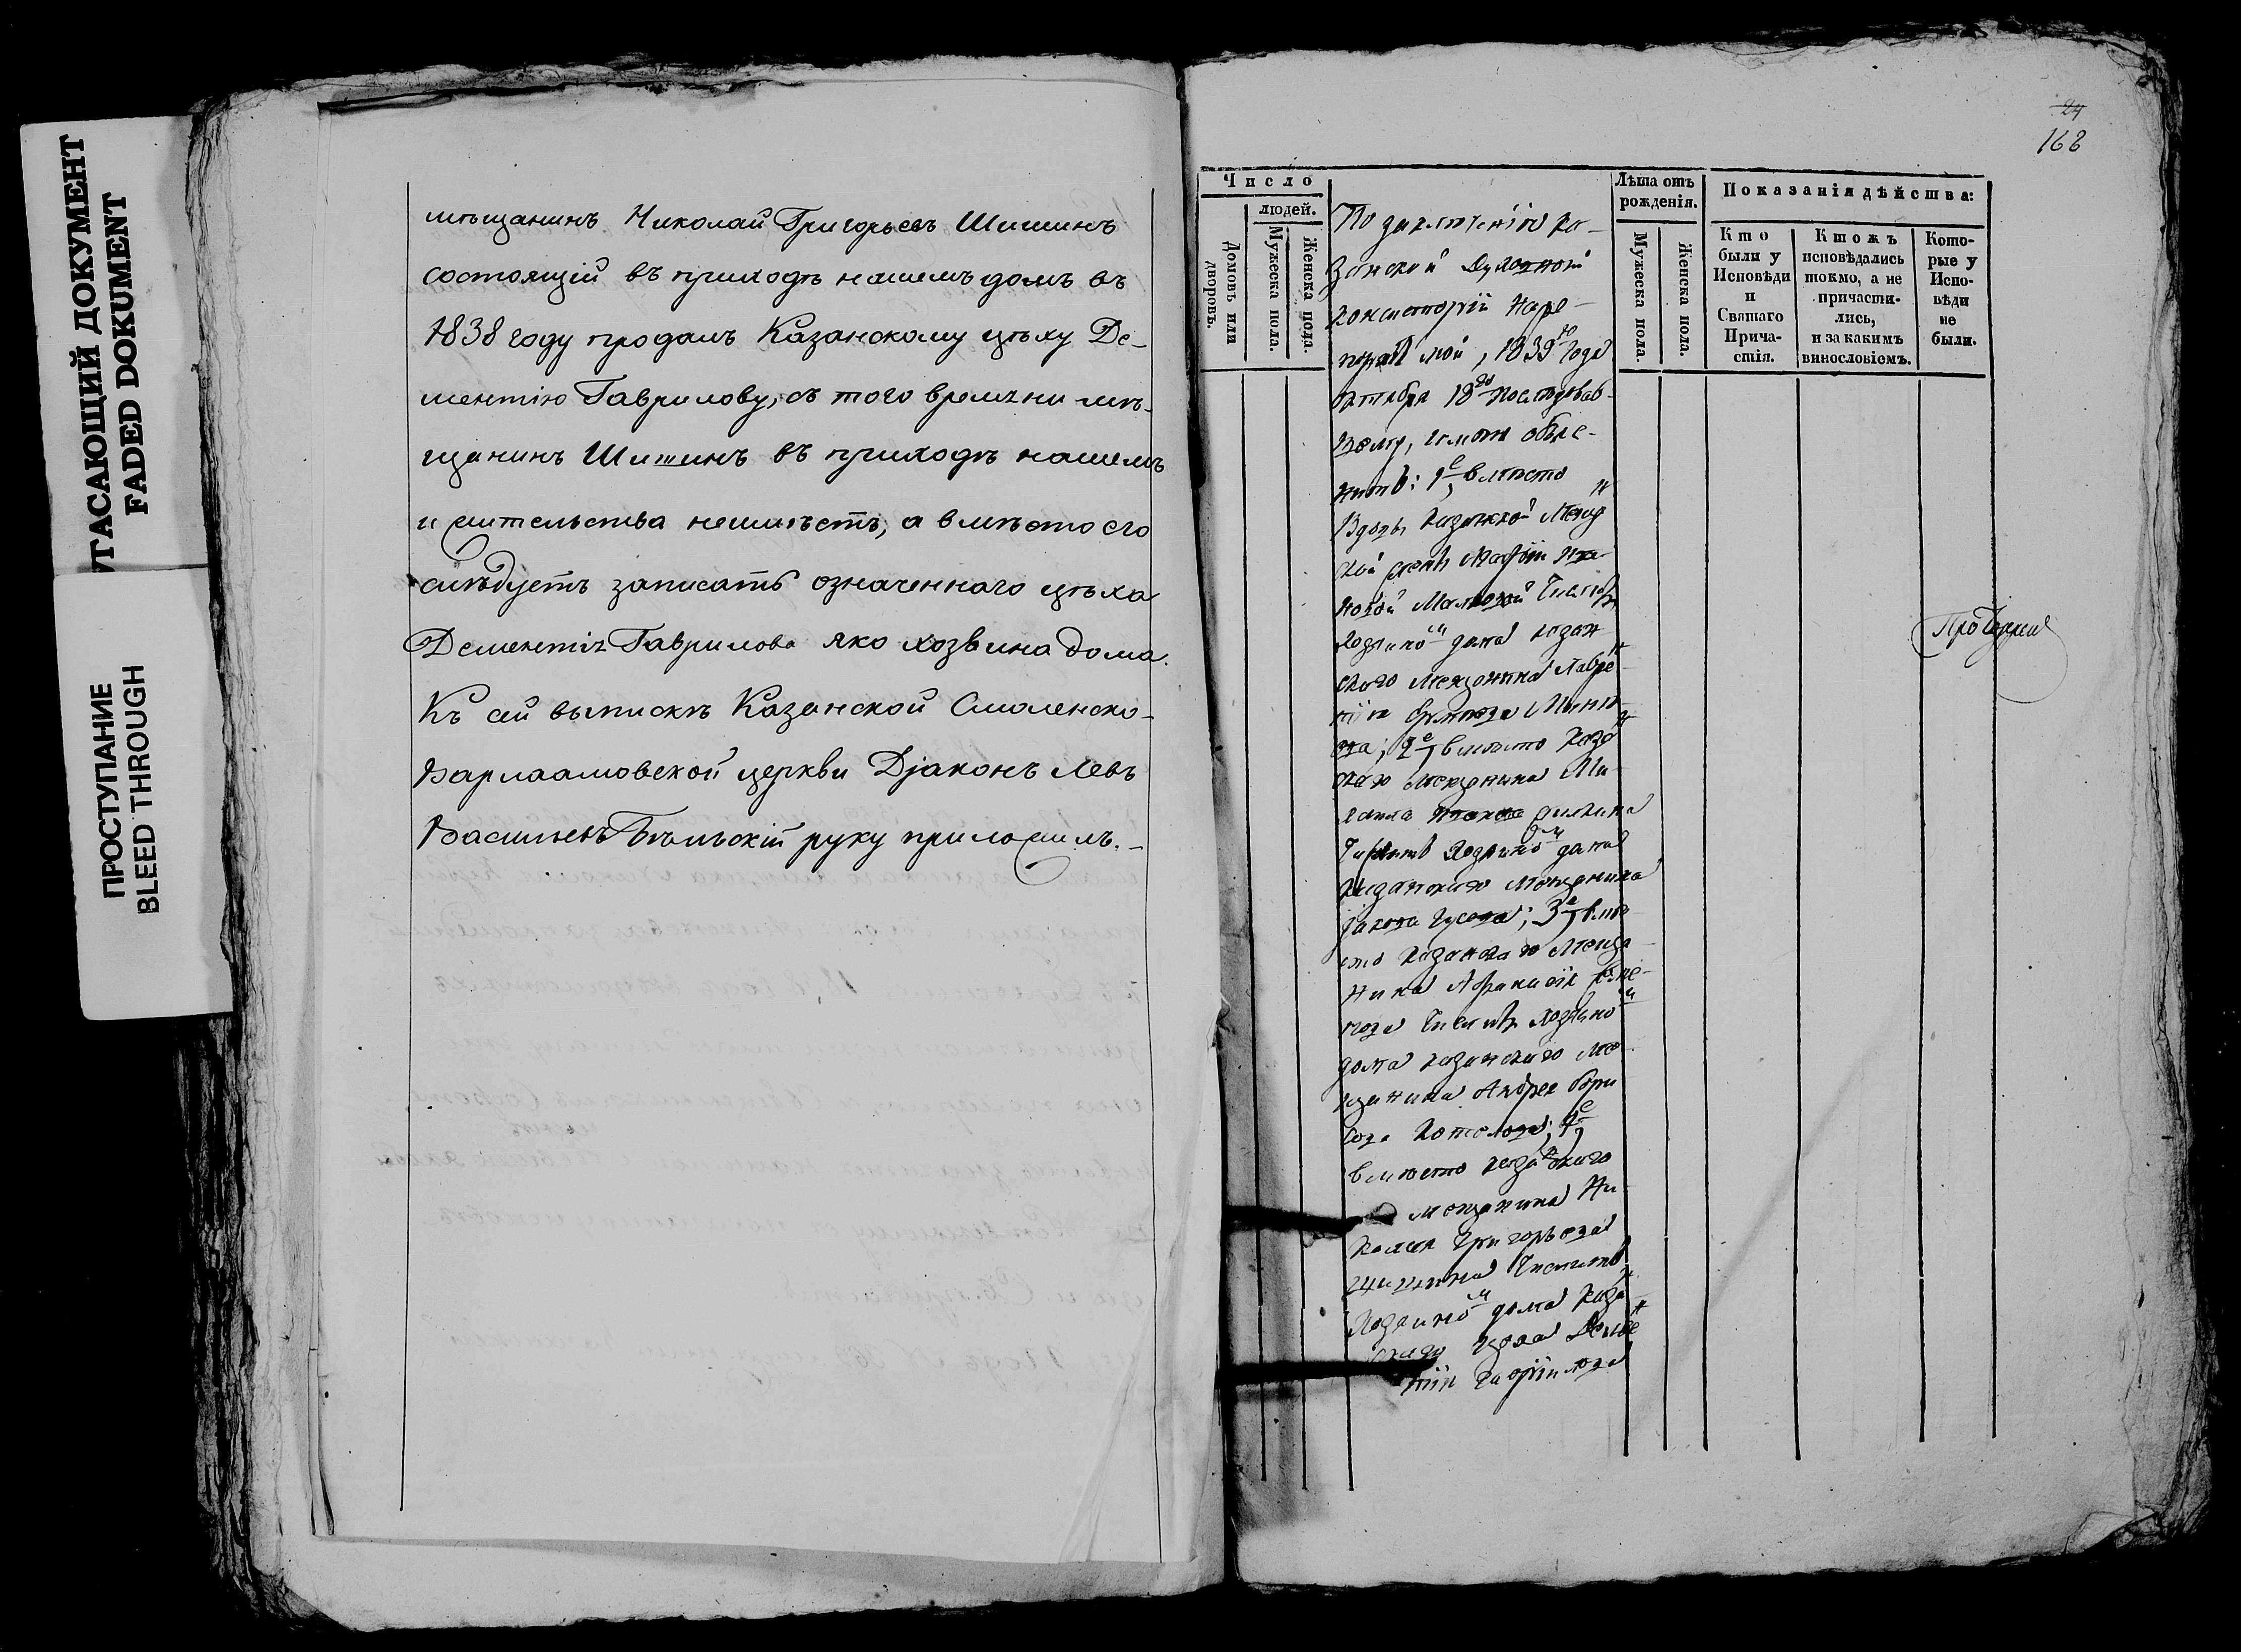 УГАСАЮЩИЙ ДОКУМЕНТ
FADED DOKUMENT
ПРОСТУПАНИЕ
BLEED THROUGH
мѣщанинъ Николай Григорьевъ Шишинъ
состоящій въ приходѣ нашемъ домъ въ
1838 году продалъ Казанскому цѣху Де-
ментію Гаврилову, съ того времѣни мѣ-
щанинъ Шишинъ въ приходѣ нашемъ
и жительства неимѣетъ, а вмѣсто его
слѣдуетъ записать означеннаго цѣха
Дементія Гаврилова яко хозвина дома.
Къ сей выпискѣ Казанской Смоленско-
Варлаамовской церкви Дjаконъ Левъ
Васильевъ Бѣльскій руку приложилъ.-
24
168
Число
людей.
Домовъ или дворовъ.
Мужеска пола.
Женска пола.
Лѣта отъ рожденія.
Мужеска пола.
Женска пола.
Показанія дѣйства:
Кто были у Исповѣди и Святаго Причастія.
Ктожъ исповѣдались токмо, а не причастились, и за какимъ винословіемъ.
Которые у Исповѣди не были.
По заключенію Ка-
занской Духовной
Консисторіи На ре-
портъ мой, 1839го года
Октября 18го последовав-
шему, имѣю объяс-
нить: 1е, вмѣсто
Вдовы Казанской Мещан
ской жены Марѳы
новой числить
Хозяиномъ дома Казан
скаго Мещанина Лавре
нтія
2е, вмѣсто Казан
скаго Мещанина Ми-
хаила
Числить Хозяиномъ дома
Казанскаго Мещанина
Якова Гусева; 3е, вмѣ
сто Казанскаго Меща
нина Афанасія
Числить Хозяиномъ
дома Казанскаго Ме-
щанина Андрея Бори
сова 4е,
вмѣсто Казанскаго
мещанина Ни-
колая Григорьева
Шишина Числить
Хозяиномъ дома Казан
скаго цеха Демен
тія Гаврилова